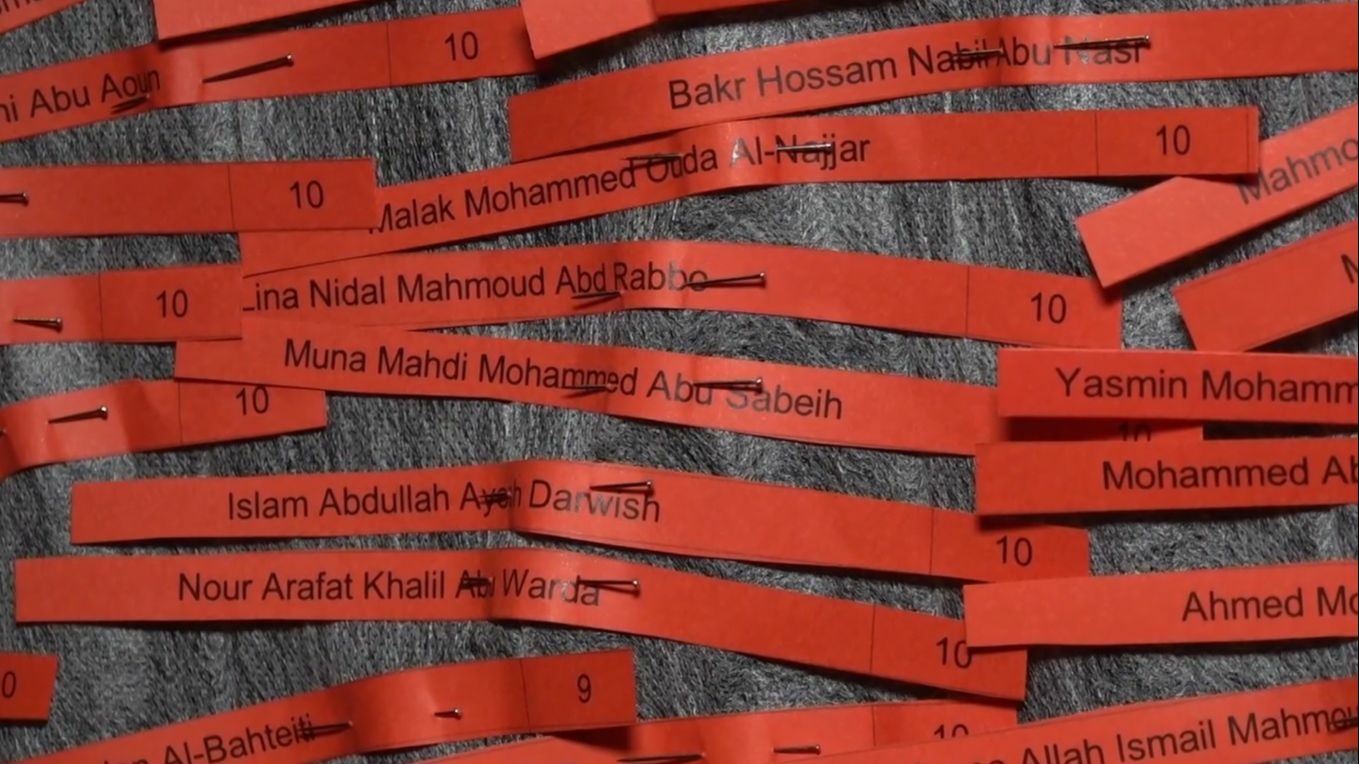 10
Abu Aoun
Bakr Hossam Nabil Abu Nasr
Malak Mohammed Ouda Al-Najjar 10
10
Lina Nidal Mahmoud Abd Rabbo 10
10
Muna Mahdi Mohammed Abu Sabeih
10
Yasmin
10
Mohammed
Islam Abdullah Ayesh Darwish 10
Nour Arafat Khalil Abu Warda 10
Ahmed
Al-Bahteiti 9
10
Allah Ismail